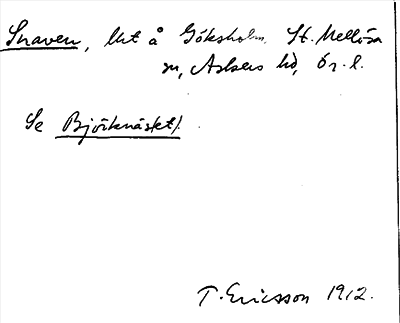 Snaven, lht å Göksholm St. Mellösa
sn, Askers hd, Ör. l.
Se Björknäset/.
T. Ericsson 1912.